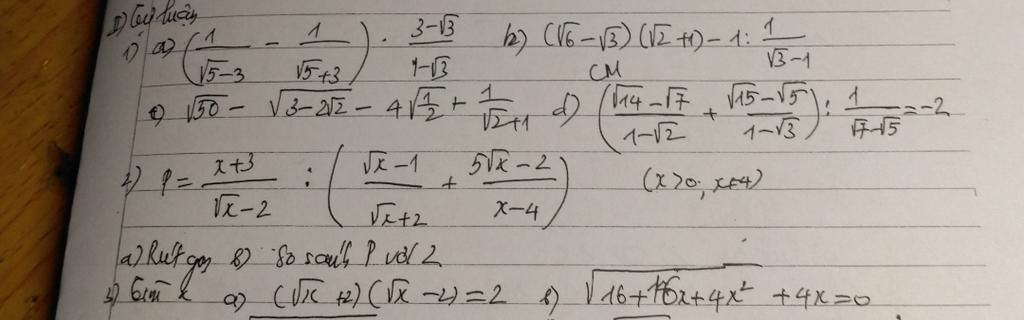 II) Tự luận
1) a) (1/(√5-3) - 1/(√5+3)) · (3-√3)/(1-√3) b) (√6-√3)(√2+1)-1: 1/(√3-1)
CM
c) √50 - √(3-2√2) - 4√(1/2) + 1/(√2+1) d) ((√14-√7)/(1-√2) + (√15-√5)/(1-√3)) : 1/(√7-√5) = -2
2) P = (x+3)/(√x-2) : ((√x-1)/(√x+2) + (5√x-2)/(x-4)) (x>0; x≠4)
a) Rút gọn b) So sánh P với 2
3) Tìm x a) (√x+2)(√x-2)=2 b) √(16+16x+4x²) +4x=0